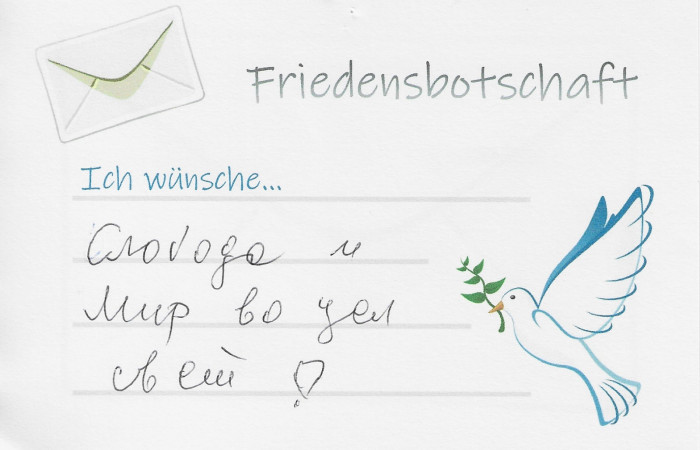 Friedensbotschaft
Ich wünsche...
Слобода и
Мир во цел
свет!